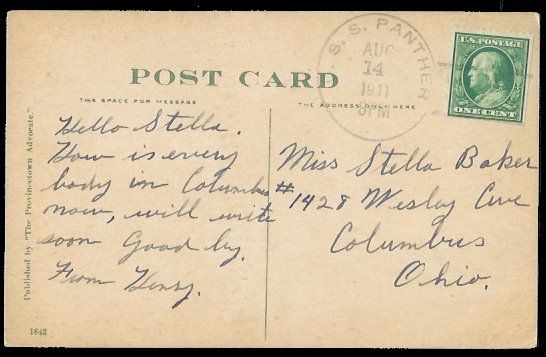 U.S. POSTAGE
ONE CENT
U. S. S. PANTHER
AUG
14
1911
6PM
POST CARD
THIS SPACE FOR MESSAGE
THE ADDRESS ONLY HERE
Hello Stella.
How is every
body in Columbus
now, will write
soon Good by.
From Henry.
Miss Stella Baker
#1428 Wesley Ave
Columbus
Ohio.
Published by "The Provincetown Advocate."
1642